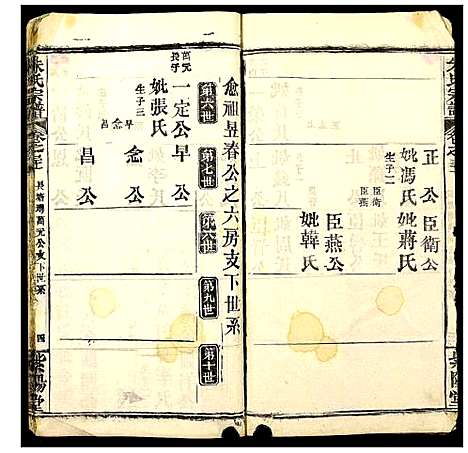 正公
妣馮氏
生子二
臣衛
臣燕
臣衛公
妣蔣氏
臣燕公
妣韓氏
愈祖昱春公之六房支下世系
第六世
第七世
第八世
第九世
第十世
萬元
長子
一定公
妣張氏
生子三
早
念
昌
早公
念公
昌公
朱氏宗譜
長塘灣萬元公支下世系
四
紫陽堂